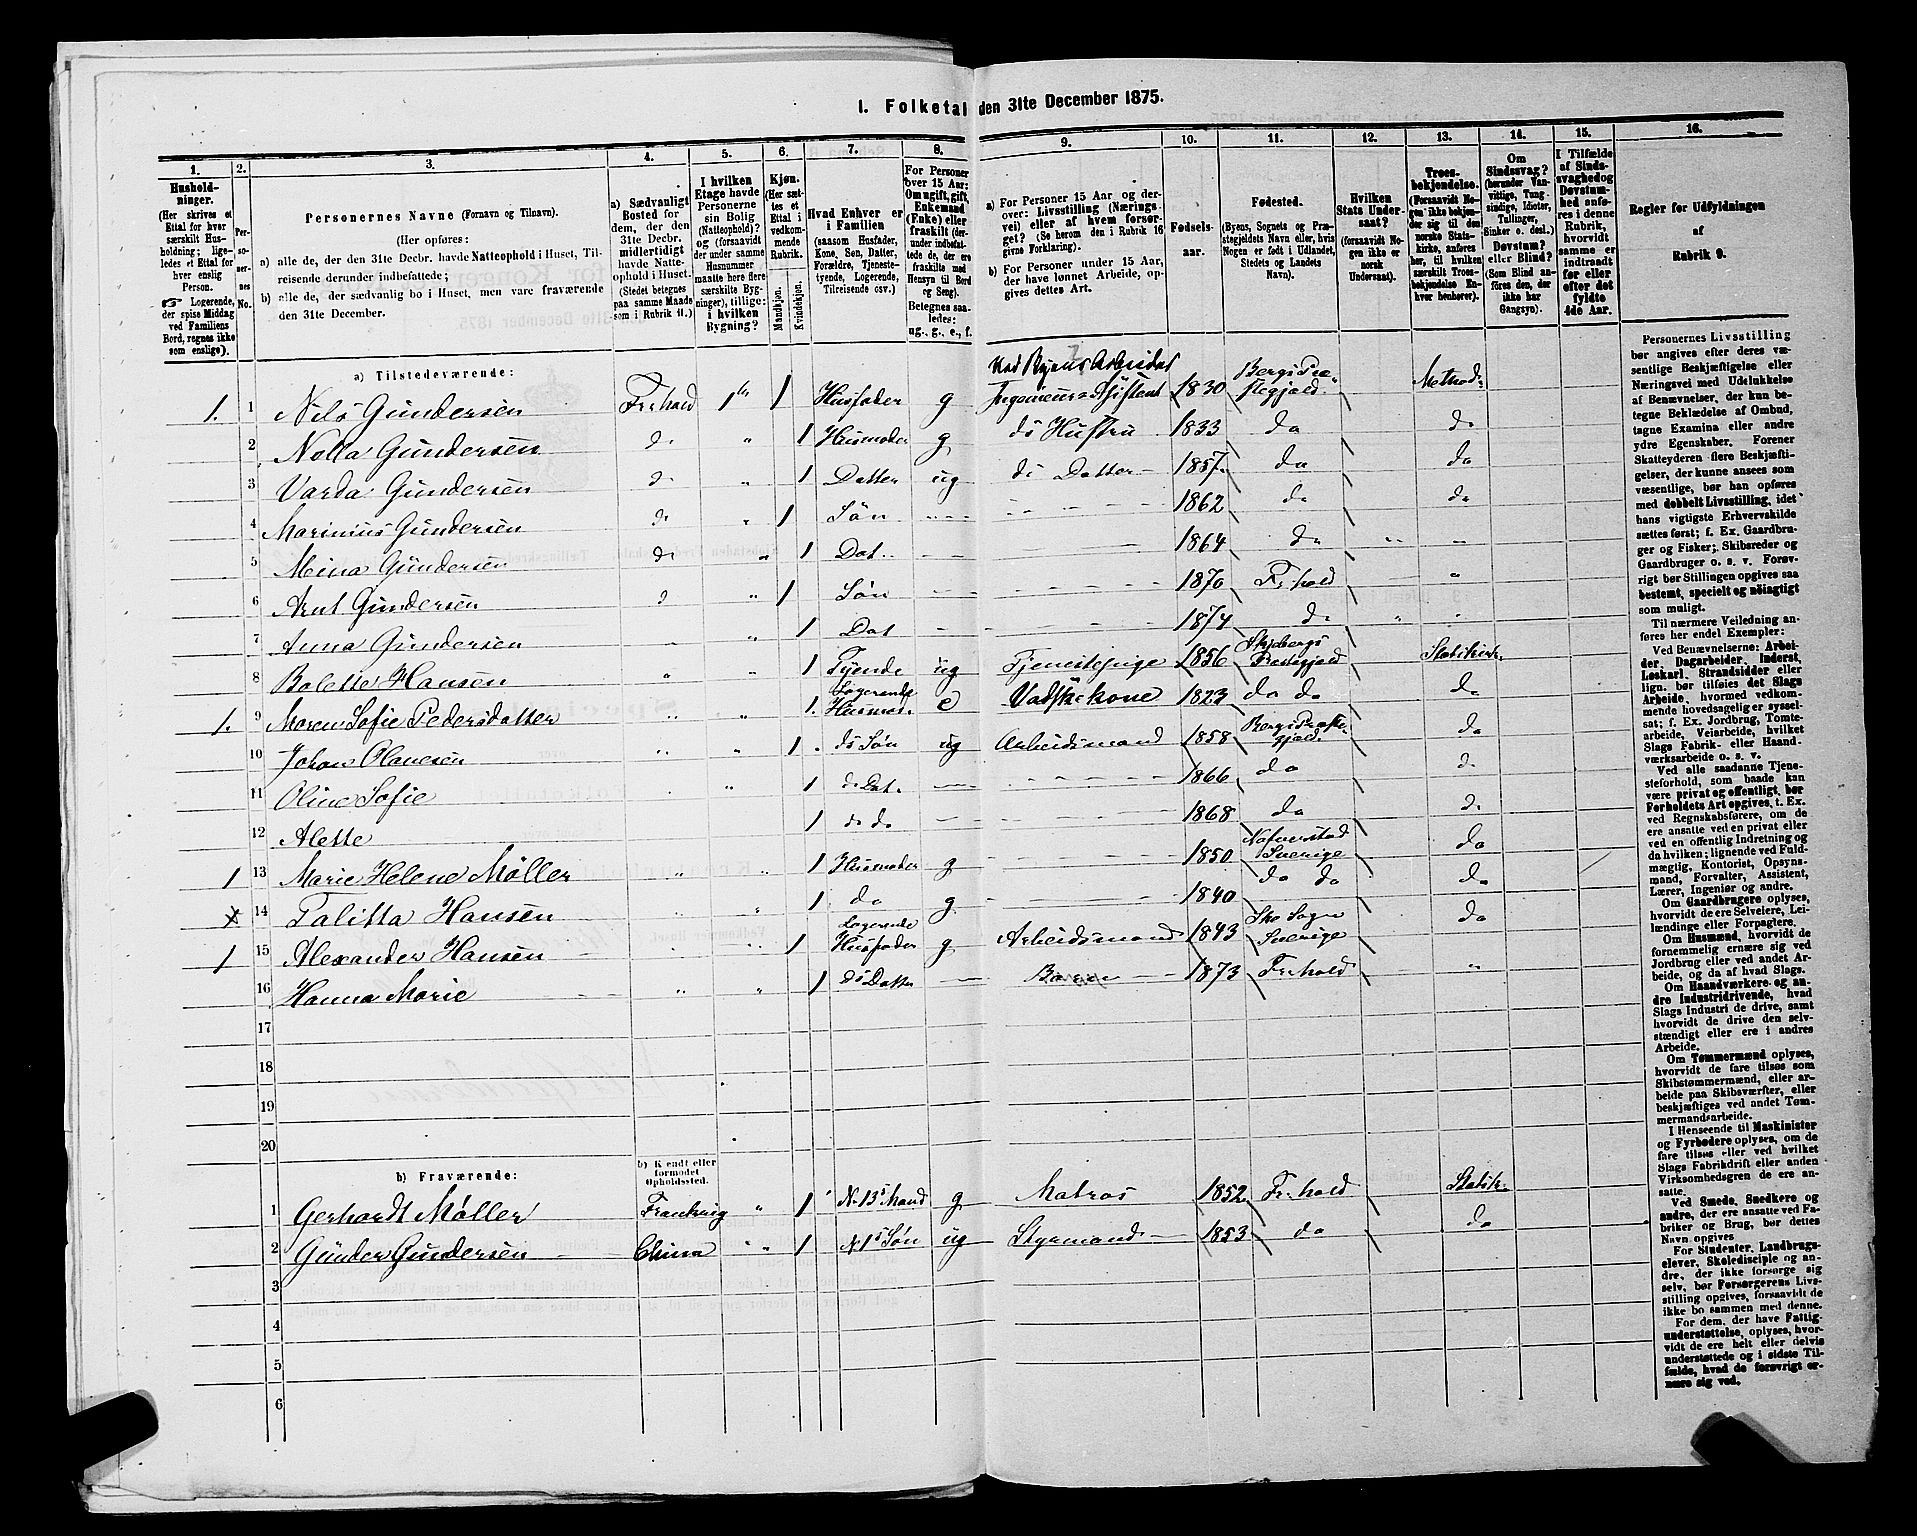 I. Folketal den 31te December 1875.
1. 2. 3. 4. 5. 6. 7. 8. 9. 10. 11. 12. 13. 14. 15. 16.
Hushold-
ninger.
(Her skrives et
Ettal for hver
særskilt Hus-
holdning; lige-
ledes et Ettal for
hver enslig
Person.
☞ Logerende,
der spise Middag
ved Familiens
Bord, regnes ikke
som enslige).
Per-
so-
ner-
nes
No.
Personernes Navne (Fornavn og Tilnavn).
(Her opføres:
a) alle de, der den 31te Decbr. havde Natteophold i Huset, Til-
reisende derunder indbefattede;
b) alle de, der sædvanlig bo i Huset, men vare fraværende
den 31te December.
a) Sædvanligt
Bosted for
dem, der den
31te Decbr.
midlertidigt
havde Natte-
ophold i Huset.
(Stedet betegnes
paa samme Maade
som i Rubrik 11.)
I hvilken
Etage havde
Personerne
sin Bolig
(Natteophold)?
og (forsaavidt
der under samme
Husnummer
maatte høre flere
særskilte Byg-
ninger), tillige:
i hvilken
Bygning?
Kjøn.
(Her sæt-
tes et
Ettal i
vedkom-
mende
Rubrik.
Mandkjøn.
Kvindekjøn.
Hvad Enhver er
i Familien
(saasom Husfader,
Kone, Søn, Datter,
Forældre, Tjeneste-
tyende, Logerende,
Tilreisende osv.)
For Personer
over 15 Aar:
Om ugift, gift,
Enkemand
(Enke) eller
fraskilt (der-
under indbefat-
tede de, der ere
fraskilte med
Hensyn til Bord
og Seng).
Betegnes saa-
ledes:
ug., g., e., f.
a) For Personer 15 Aar og der-
over: Livsstilling (Nærings-
vei) eller af hvem forsør-
get? (Se herom den i Rubrik 16
givne Forklaring).
b) For Personer under 15 Aar,
der have lønnet Arbeide, op-
gives dettes Art.
Fødsels-
aar.
Fødested.
(Byens, Sognets og Præ-
stegjeldets Navn eller, hvis
Nogen er født i Udlandet,
Stedets og Landets
Navn).
Hvilken
Stats Under-
saat?
(forsaavidt No-
gen ikke er
norsk
Undersaat).
Troes-
bekjendelse.
(Forsaavidt No-
gen ikke bekjen-
der sig til den
norske Stats-
kirke, anføres
her, til hvilken
særskilt Troes-
bekjendelse En-
hver henhører).
Om
Sindssvag?
(herunder Van-
vittige, Tung
sindige, Idioter,
Tullinger,
Sinker o. desl.)
Døvstum?
eller Blind?
(Som Blind an-
føres den, der
ikke har
Gangsyn).
I Tilfælde
af Sinds-
svaghed og
Døvstum-
hed anfø-
res i denne
Rubrik,
hvorvidt
samme er
indtraadt
før eller
efter det
fyldte
4de Aar.
Regler for Udfyldningen
af
Rubrik 9.
a) Tilstedeværende:
Ved Byens Arbeider
1. 1 Nils Gundersen Fr.hald 1ste 1 Husfader g Ingenieur-Assistent 1830 Bergs Præstegjæld. Method.
2 Nolla Gundersen do " 1 Husmoder g ds Hustru 1833 do do
3 Varda Gundersen do " 1 Datter ug ds Datter 1857 do do
4 Marinius Gundersen do " 1 Søn 1862 do do
5 Mina Gundersen do " 1 Dat. 1864 do " "
6 Arnt Gundersen do " 1 Søn 1870 Fr.hald "
7 Anna Gundersen " 1 Dat 1874 do " "
8 Bolette Hansen " " 1 Tyende ug Tjenestepige 1856 Skjebergs Prestegjeld Statskirk.
1. 9 Maren Sofie Pedersdatter " " 1. Logerende Husmo. e Vadskekone 1823 do do do
10 Johan Olavesen " " 1 ds Søn ug Arbeidsmand 1858 Bergs Præstegjæld. do
11 Oline Sofie " 1 ds Dat. 1866 do do
12 Alette 1 ds do 1868 do do
1 13 Marie Helene Møller " " 1 Husmoder g 1850 Nafverstad Sverige do
14 Talitta Hansen " 1 do g 1840 do do do
1 15 Alexander Hansen " " 1 Logerende Husfader g Arbeidsmand 1843 Ske Sogn Sverige do
16 Hanna Marie " " 1 ds Datter Barn 1873 Fr.hald "
17
18
19
20
b) Fraværende:
b) Kjendt eller
formodet
Opholdssted.
1 Gerhardt Møller Frankrig " 1 No 13s Mand g Matros 1852 Fr.hald Statsk.
2 Günder Gundersen China " " 1 N 1s Søn ug Styrmand 1853 do do
3
4
5
6
Personernes Livsstilling
bør angives efter deres væ-
sentlige Beskjæftigelse eller
Næringsvei med Udelukkelse
af Benævnelser, der kun be-
tegne Beklædelse af Ombud,
tagne Examina eller andre
ydre Egenskaber. Forener
Skatteyderen flere Beskjæfti-
gelser, der kunne ansees som
væsentlige, bør han opføres
med dobbelt Livsstilling, idet
hans vigtigste Erhvervskilde
sættes først; f. Ex. Gaardbru-
ger og Fisker; Skibsreder og
Gaardbruger o. s. v. Forøv-
rigt bør Stillingen opgives saa
bestemt, specielt og nöiagtigt
som muligt.
Til nærmere Veiledning an-
føres her endel Exempler:
Ved Benævnelserne: Arbei-
der, Dagarbeider, Inderst,
Løskarl, Strandsidder eller
lign. bør tilføies det Slags
Arbeide, hvormed vedkom-
mende hovedsagelig er syssel-
sat; f. Ex. Jordbrug, Tomte-
arbeide, Veiarbeide, hvilket
Slags Fabrik- eller Haand-
værksarbeide o. s. v.
Ved alle saadanne Tjene-
steforhold, som baade kan
være privat og offentligt, bør
Forholdets Art opgives, t. Ex.
ved Regnskabsførere, om de
ere ansatte ved en privat eller
ved en offentlig Indretning og
da hvilken; lignende ved Fuld-
mægtig, Kontorist, Opsyns-
mand, Forvalter, Assistent,
Lærer, Ingeniør og andre.
Om Gaardbrugere oplyses,
hvorvidt de ere Selveiere, Lei-
lændinge eller Forpagtere.
Om Husmænd, hvorvidt de
fornemmelig ernære sig ved
Jordbrug eller ved andet Ar-
beide, og da af hvad Slags.
Om Haandværkere og an-
dre Industridrivende, hvad
Slags Industri de drive, samt
hvorvidt de drive den selv-
stændigt eller ere i andres
Arbeide.
Om Tømmermænd oplyses,
hvorvidt de fare tilsøs som
Skibstømmermænd, eller ar-
beide paa Skibsværfter, eller
beskjæftiges ved andet Tøm-
mermandsarbeide.
I Henseende til Maskinister
og Fyrbødere oplyses, om de
fare tilsøs eller ved hvilket
Slags Fabrikdrift eller anden
Virksomhedsgren de ere an-
satte.
Ved Smede, Snedkere og
andre, der ere ansatte ved Fa-
briker og Brug, bør dettes
Navn opgives
For Studenter, Landbrugs-
elever, Skoledisciple og an-
dre, der ikke forsørge sig
selv, bør Forsørgerens Livs-
stilling opgives, forsaavidt de
ikke bo sammen med denne.
For dem, der have Fattig-
understøttelse, oplyses, hvor-
vidt de ere helt eller delvis
understøttede og i sidste Til-
fælde, hvad de forøvrigt er-
nære sig ved.